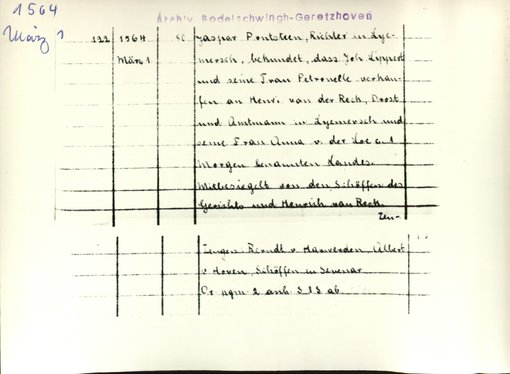 1564
März 1
Archiv Bodelschwingh-Geretzhoven
122 1564 Jaspar Pontsteen, Richter in Lye-
März 1 mersch, bekundet, dass Joh. Lippert
und seine Frau Petronelle verkau-
fen an Henr. van der Reck, Drost
und Amtmann in Lyemersch und
seine Frau Anna v. der Loe
Morgen besamten Landes.
Mitbesiegelt von den Schöffen des
Gerichts und Henrich van Reck.
Zeu-
Zeugen: Berndt v. Hauverden Albert
v. Hoven, Schöffen in Sevenar
Or. pgm. 2 anh. S. 1 S. ab